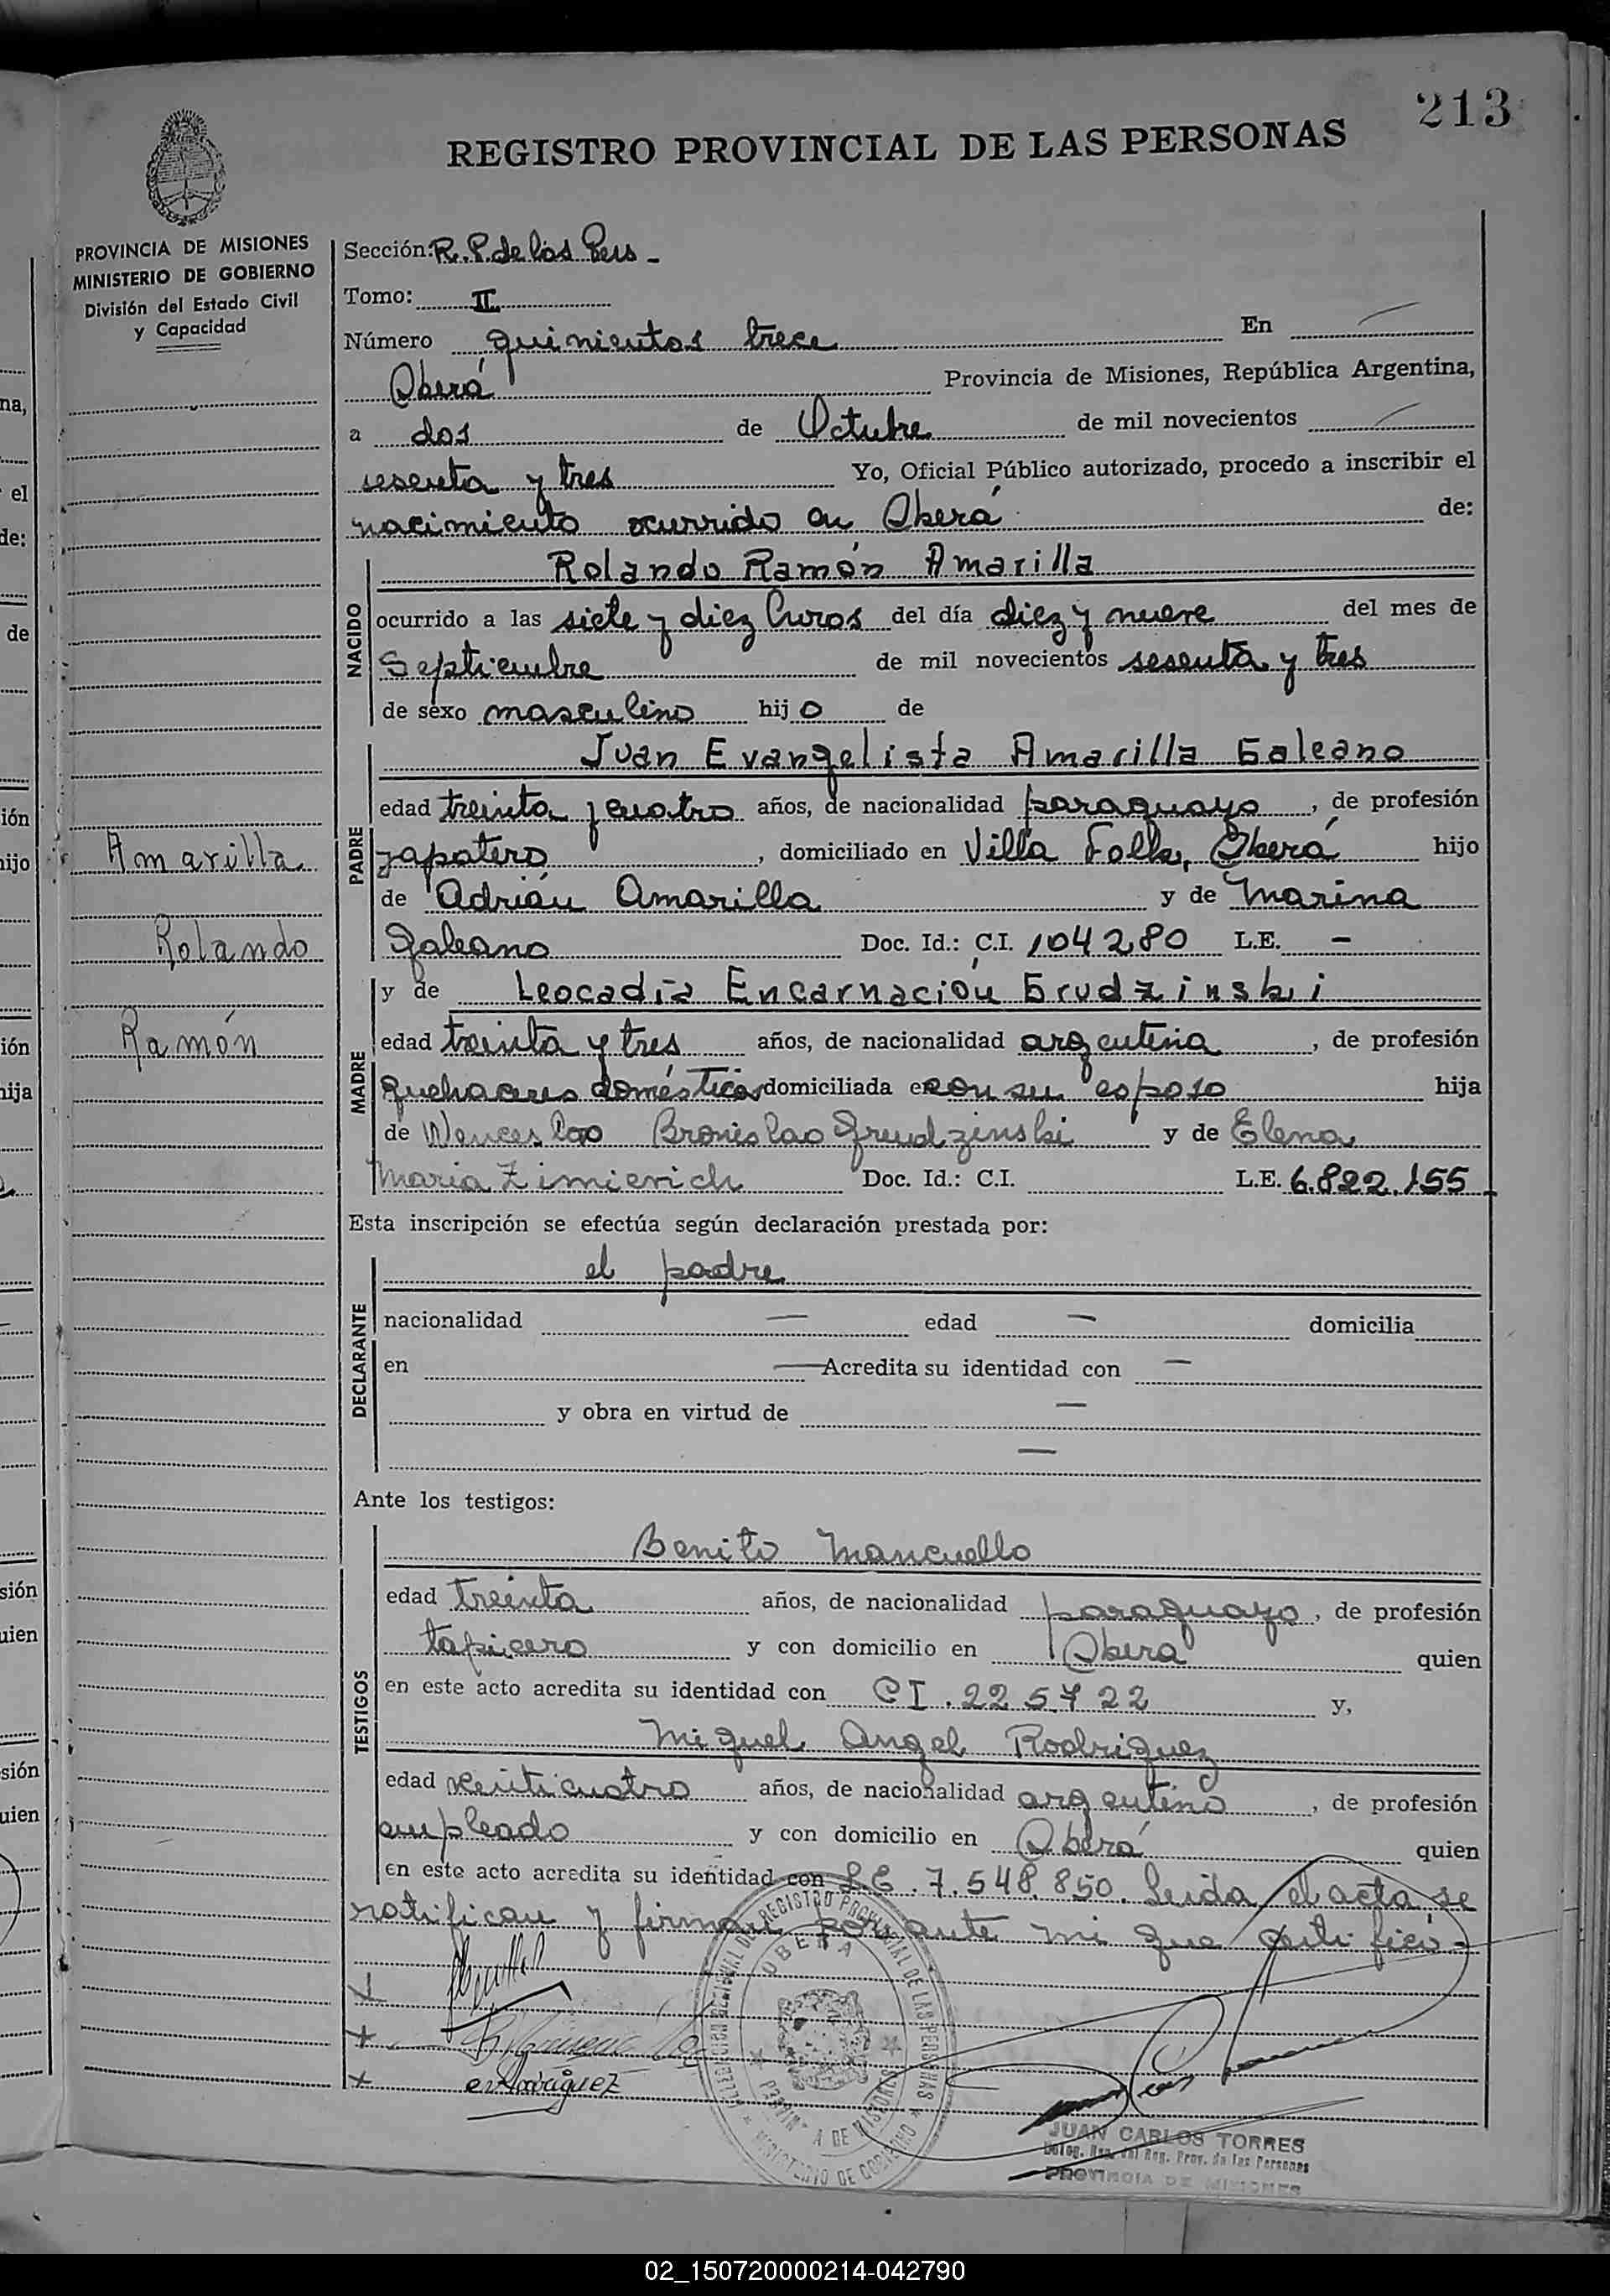 213
REGISTRO PROVINCIAL DE LAS PERSONAS
PROVINCIA DE MISIONES
MINISTERIO DE GOBIERNO
División del Estado Civil
y Capacidad
Sección: R. P. de las Pers -
Tomo: II
Número quinientos trece En
Oberá Provincia de Misiones, República Argentina,
a dos de Octubre de mil novecientos
sesenta y tres Yo, Oficial Público autorizado, procedo a inscribir el
nacimiento ocurrido en Oberá de:
NACIDO
Rolando Ramón Amarilla
ocurrido a las siete y diez horas del día diez y nueve del mes de
Septiembre de mil novecientos sesenta y tres
de sexo masculino hijo de
PADRE
Juan Evangelista Amarilla Galeano
edad treinta y cuatro años, de nacionalidad paraguayo, de profesión
zapatero, domiciliado en Villa Oberá hijo
Amarilla
de Adrián Amarilla y de Marina
Rolando
Galeano Doc. Id.: C.I. 104280 L.E. -
MADRE
y de Leocadia Encarnación Grudzinski
Ramón
edad treinta y tres años, de nacionalidad argentina, de profesión
quehaceres domésticos domiciliada en con su esposo hija
de Wenceslao Bronislao Grudzinski y de Elena
Maria Zimievich Doc. Id.: C.I. L.E. 6.822.155
Esta inscripción se efectúa según declaración prestada por:
DECLARANTE
el padre
nacionalidad — edad — domicilia
en — Acredita su identidad con —
y obra en virtud de —
—
Ante los testigos:
TESTIGOS
Benito Mancuello
edad treinta años, de nacionalidad paraguayo, de profesión
tapicero y con domicilio en Oberá quien
en este acto acredita su identidad con CI. 225.722 y,
Miguel Angel Rodriguez
edad veinticuatro años, de nacionalidad argentino, de profesión
empleado y con domicilio en Oberá quien
en este acto acredita su identidad con L.E. 7.548.850. Leida el acta se
ratifican y firman por ante mi que certifico -
OBERA
JUAN CARLOS TORRES
Reg. Prov. de las Personas
PROVINCIA DE MISIONES
02_150720000214-042790